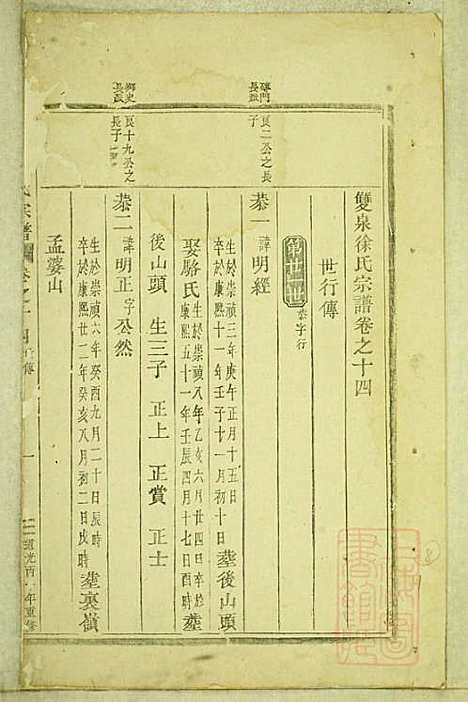 雙泉徐氏宗譜卷之十四
世行傳
恭字行
磚門長派
良二公之長子
恭一 諱明經
生於崇禎三年庚午正月十五日
卒於康熙十一年壬子十一月初十日 塟後山頭
娶駱氏 生於崇禎八年乙亥六月廿四日卒於
康熙五十一年壬辰四月十七日酉時 塟
後山頭 生三子 正上 正賞 正士
良十九公之長子
恭二 諱明正 字公然
生於崇禎六年癸酉九月二十日辰時
卒於康熙廿二年癸亥八月初二日戌時 塟裏嶺
孟婆山
氏宗譜 卷之十四 行傳 一
道光丙 年重修